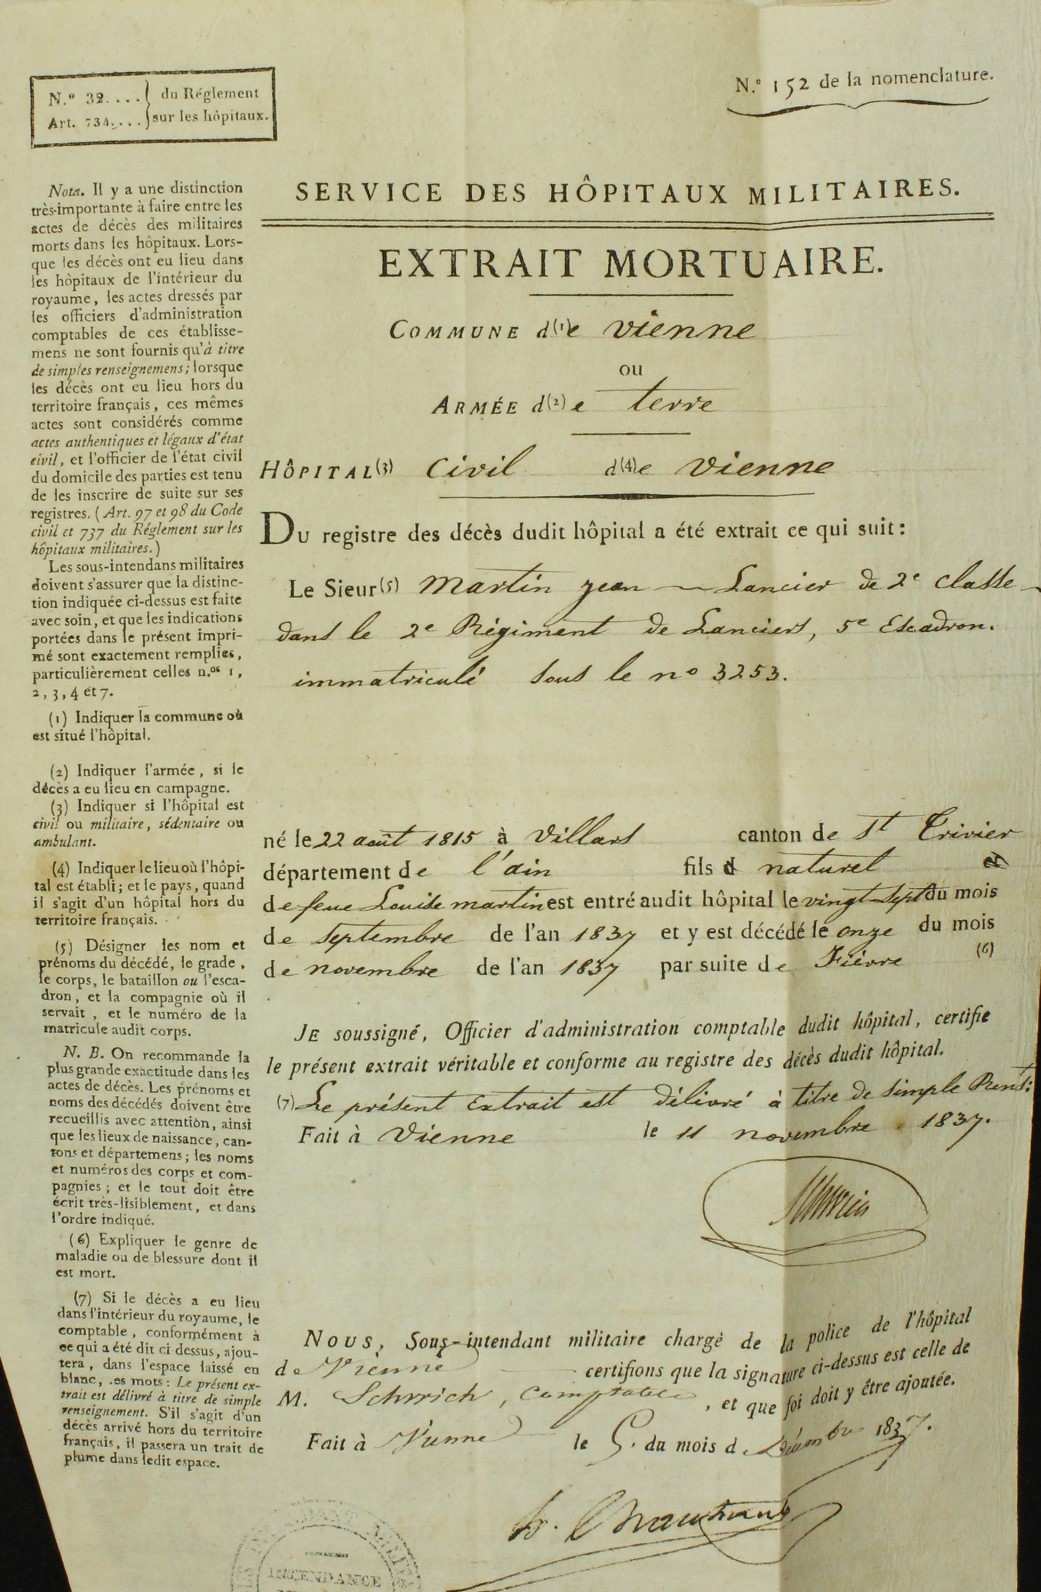 N.º 32.... du Réglement
Art. 734.... sur les hôpitaux.
N.º 152 de la nomenclature.
SERVICE DES HÔPITAUX MILITAIRES.
EXTRAIT MORTUAIRE.
COMMUNE d(1)e Vienne
ou
ARMÉE d(2)e terre
HÔPITAL(3) Civil d(4)e Vienne
DU registre des décès dudit hôpital a été extrait ce qui suit :
Le Sieur(5) Martin Jean — Lancier de 2e Classe
dans le 2e Régiment de Lanciers, 5e Escadron.
immatriculé sous le no 3253.
né le 22 août 1815 à Villars canton de St Trivier
département de l'ain fils d naturel et
de feue Louise martin est entré audit hôpital le vingt sept du mois
de septembre de l'an 1837 et y est décédé le onze du mois
de novembre de l'an 1837 par suite de Fièvre (6)
JE soussigné, Officier d'administration comptable dudit hôpital, certifie
le présent extrait véritable et conforme au registre des décès dudit hôpital.
(7) Le présent Extrait est délivré à titre de simple Renst:
Fait à Vienne le 11 novembre 1837.
NOUS, Sous-intendant militaire chargé de la police de l'hôpital
de Vienne certifions que la signature ci-dessus est celle de
M. Schrrich, Comptable, et que foi doit y être ajoutée.
Fait à Vienne le 5. du mois de Décembre 1837.
INTENDANCE
Nota. Il y a une distinction
très-importante à faire entre les
actes de décès des militaires
morts dans les hôpitaux. Lors-
que les décès ont eu lieu dans
les hôpitaux de l'intérieur du
royaume, les actes dressés par
les officiers d'administration
comptables de ces établisse-
mens ne sont fournis qu'à titre
de simples renseignemens; lorsque
les décès ont eu lieu hors du
territoire français, ces mêmes
actes sont considérés comme
actes authentiques et légaux d'état
civil, et l'officier de l'état civil
du domicile des parties est tenu
de les inscrire de suite sur ses
registres. (Art. 97 et 98 du Code
civil et 737 du Réglement sur les
hôpitaux militaires.)
Les sous-intendans militaires
doivent s'assurer que la distinc-
tion indiquée ci-dessus est faite
avec soin, et que les indications
portées dans le présent impri-
mé sont exactement remplies,
particulièrement celles n.os 1,
2, 3, 4 et 7.
(1) Indiquer la commune où
est situé l'hôpital.
(2) Indiquer l'armée, si le
décès a eu lieu en campagne.
(3) Indiquer si l'hôpital est
civil ou militaire, sédentaire ou
ambulant.
(4) Indiquer le lieu où l'hôpi-
tal est établi; et le pays, quand
il s'agit d'un hôpital hors du
territoire français.
(5) Désigner les nom et
prénoms du décédé, le grade,
le corps, le bataillon ou l'esca-
dron, et la compagnie où il
servait, et le numéro de la
matricule audit corps.
N. B. On recommande la
plus grande exactitude dans les
actes de décès. Les prénoms et
noms des décédés doivent être
recueillis avec attention, ainsi
que les lieux de naissance, can-
tons et départemens; les noms
et numéros des corps et com-
pagnies; et le tout doit être
écrit très-lisiblement, et dans
l'ordre indiqué.
(6) Expliquer le genre de
maladie ou de blessure dont il
est mort.
(7) Si le décès a eu lieu
dans l'intérieur du royaume, le
comptable, conformément à
ce qui a été dit ci dessus, ajou-
tera, dans l'espace laissé en
blanc, les mots: Le présent ex-
trait est délivré à titre de simple
renseignement. S'il s'agit d'un
décès arrivé hors du territoire
français, il passera un trait de
plume dans ledit espace.